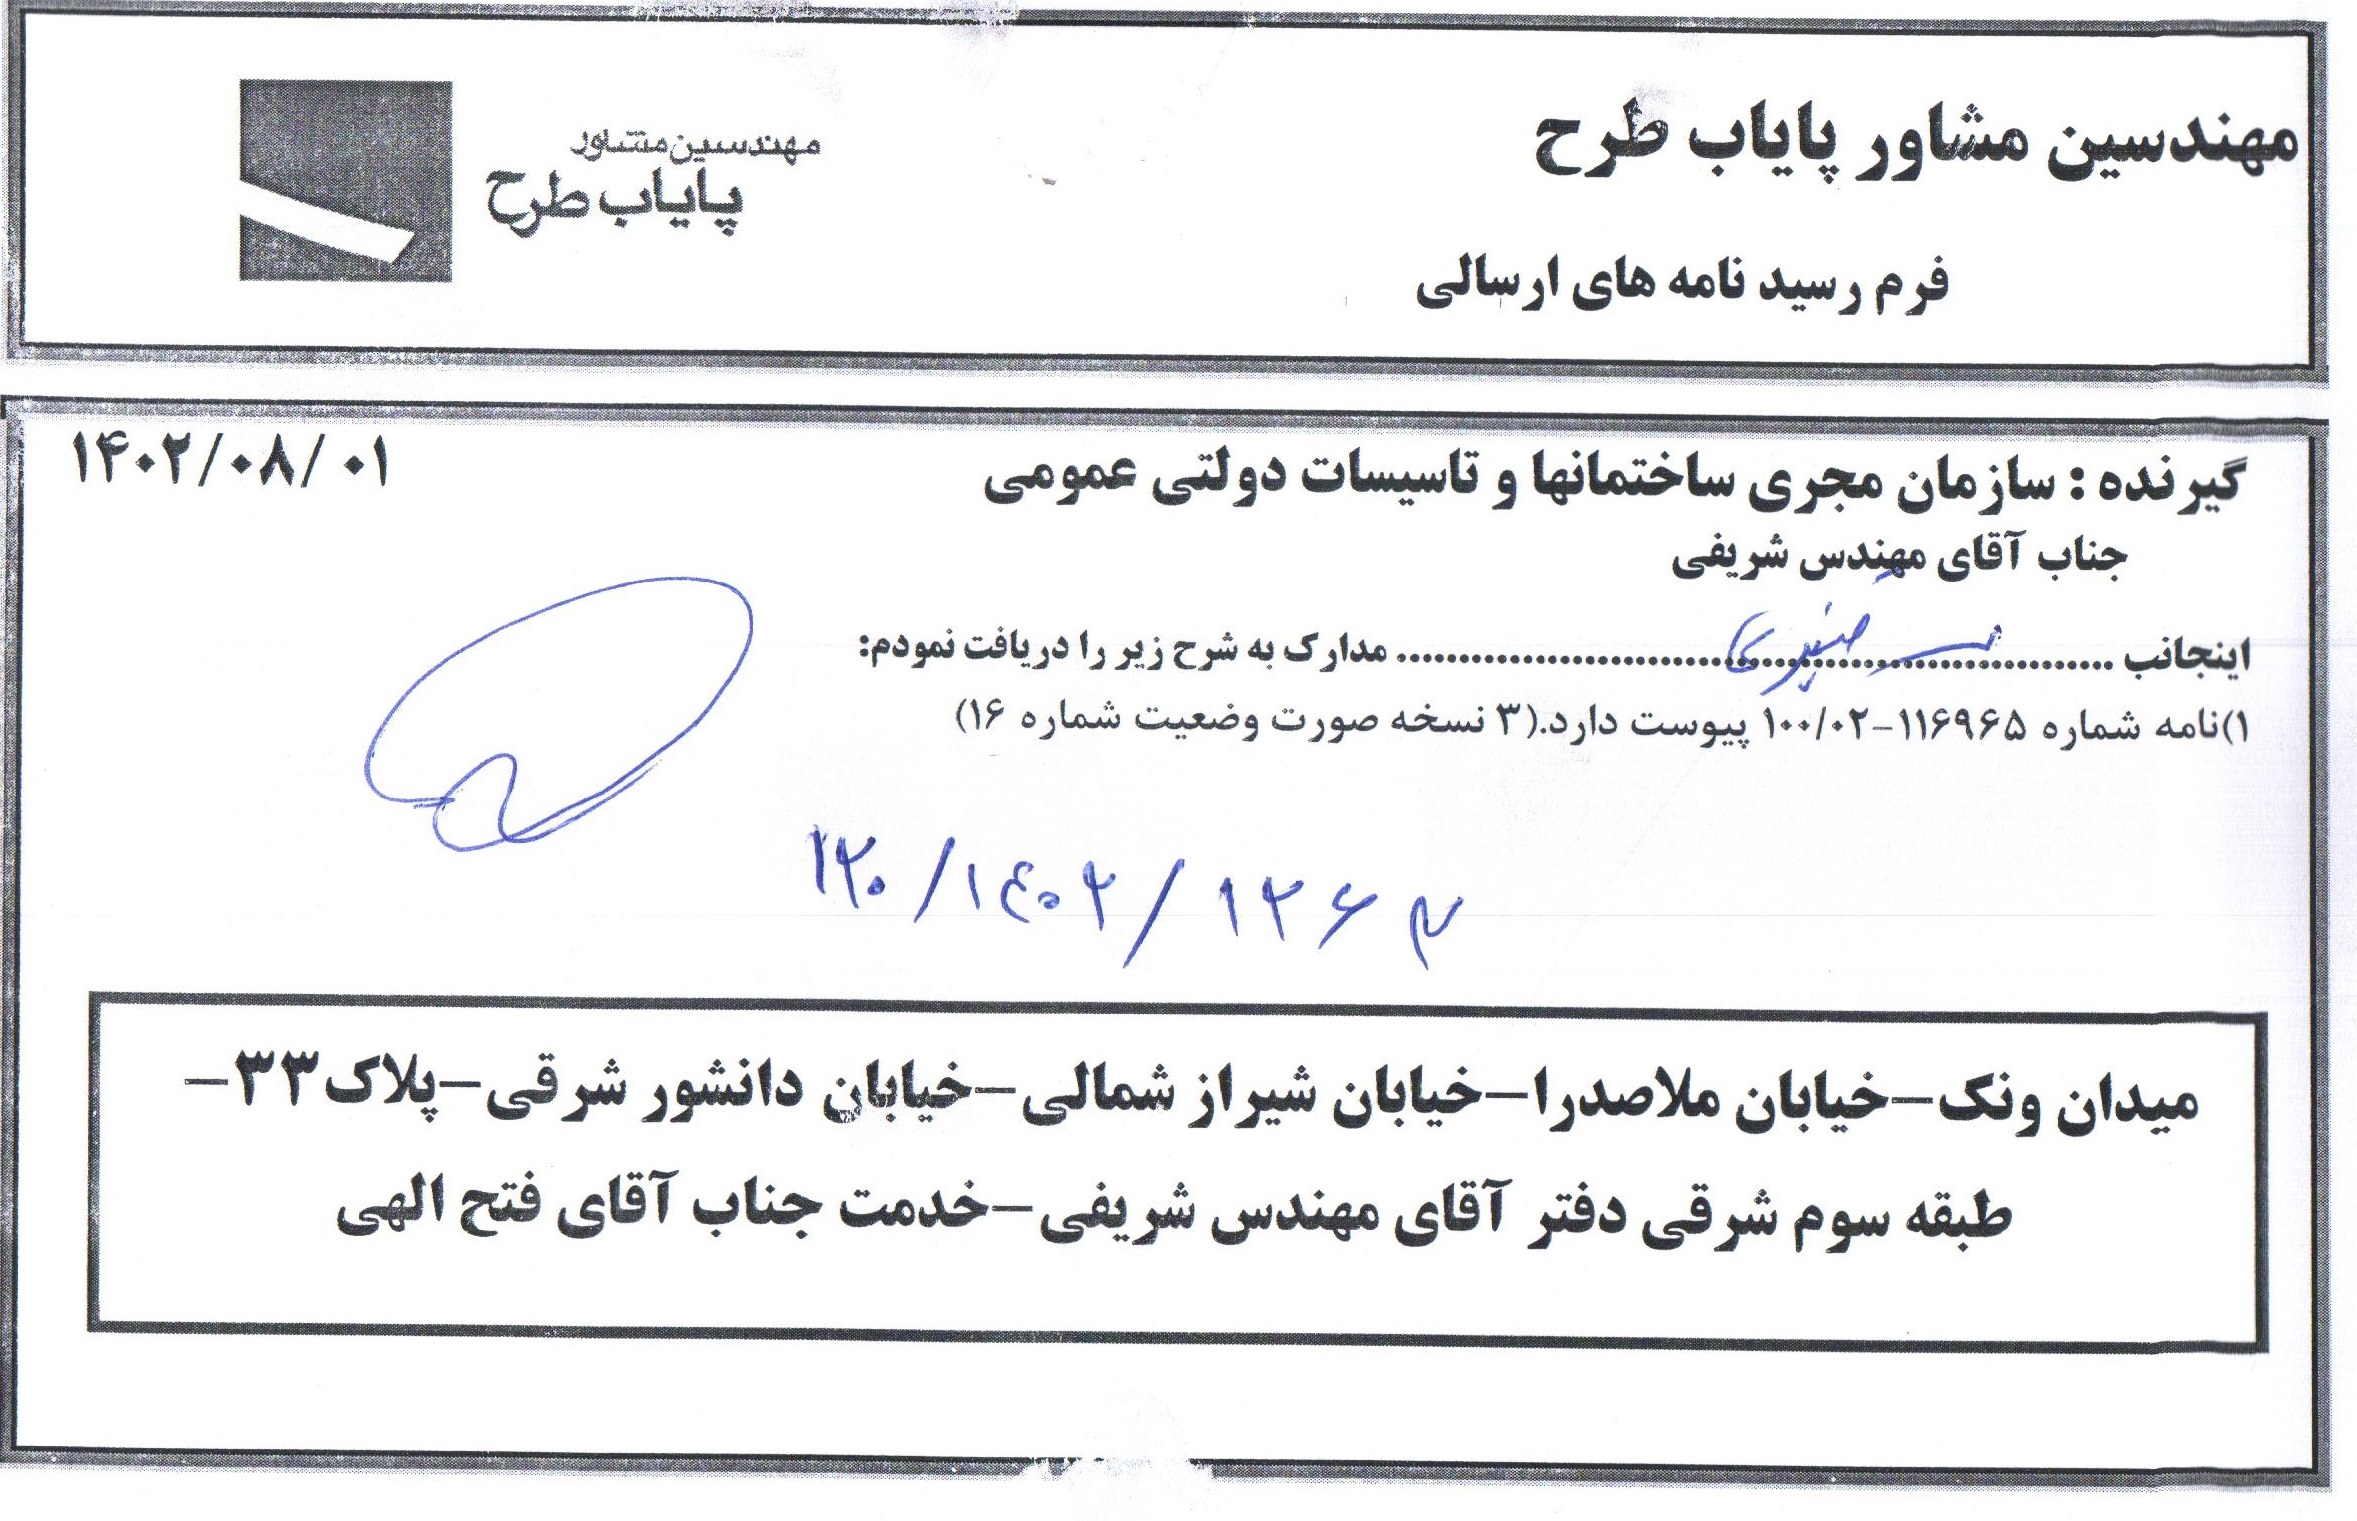 مهندسین مشاور پایاب طرح
مهندسین مشاور
پایاب طرح
فرم رسید نامه های ارسالی
گیرنده : سازمان مجری ساختمانها و تاسیسات دولتی عمومی
۱۴۰۲/۰۸/۰۱
جناب آقای مهندس شریفی
اینجانب ........................................................ مدارک به شرح زیر را دریافت نمودم:
۱)نامه شماره ۱۱۶۹۶۵-۱۰۰/۰۲ پیوست دارد.(۳ نسخه صورت وضعیت شماره ۱۶)
۱۳۰/۱۴۰۲/۱۲۶۳
میدان ونک-خیابان ملاصدرا-خیابان شیراز شمالی-خیابان دانشور شرقی-پلاک۳۳-
طبقه سوم شرقی دفتر آقای مهندس شریفی-خدمت جناب آقای فتح الهی